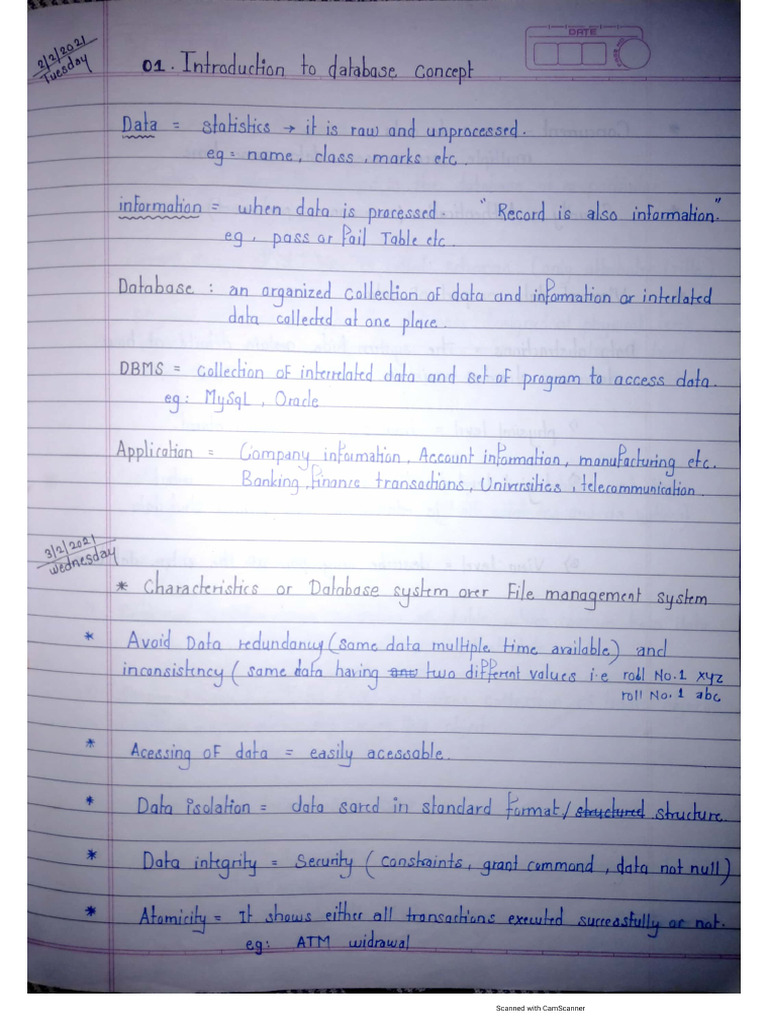 2/2/2021
Tuesday
DATE
01. Introduction to database concept
Data = statistics → it is raw and unprocessed.
eg = name, class, marks etc.
information = when data is processed. "Record is also information"
eg, pass or fail Table etc.
Database : an organized collection of data and information or interlated
data collected at one place.
DBMS = collection of interrelated data and set of program to access data.
eg: MySqL, Oracle
Application = Company information, Account information, manufacturing etc.
Banking, finance transactions, Universities, telecommunication.
3/2/2021
Wednesday
* Characteristics or Database system over File management system
* Avoid Data redundancy (same data multiple time available) and
inconsistency ( same data having two different values i.e roll No.1 xyz
roll No.1 abc
* Acessing of data = easily acessable.
* Data isolation = data sared in standard format/ structured structure.
* Data integrity = Security ( constraints, grant command, data not null)
* Atomicity = It shows either all transactions executed successfully or not.
eg: ATM widrawal
Scanned with CamScanner